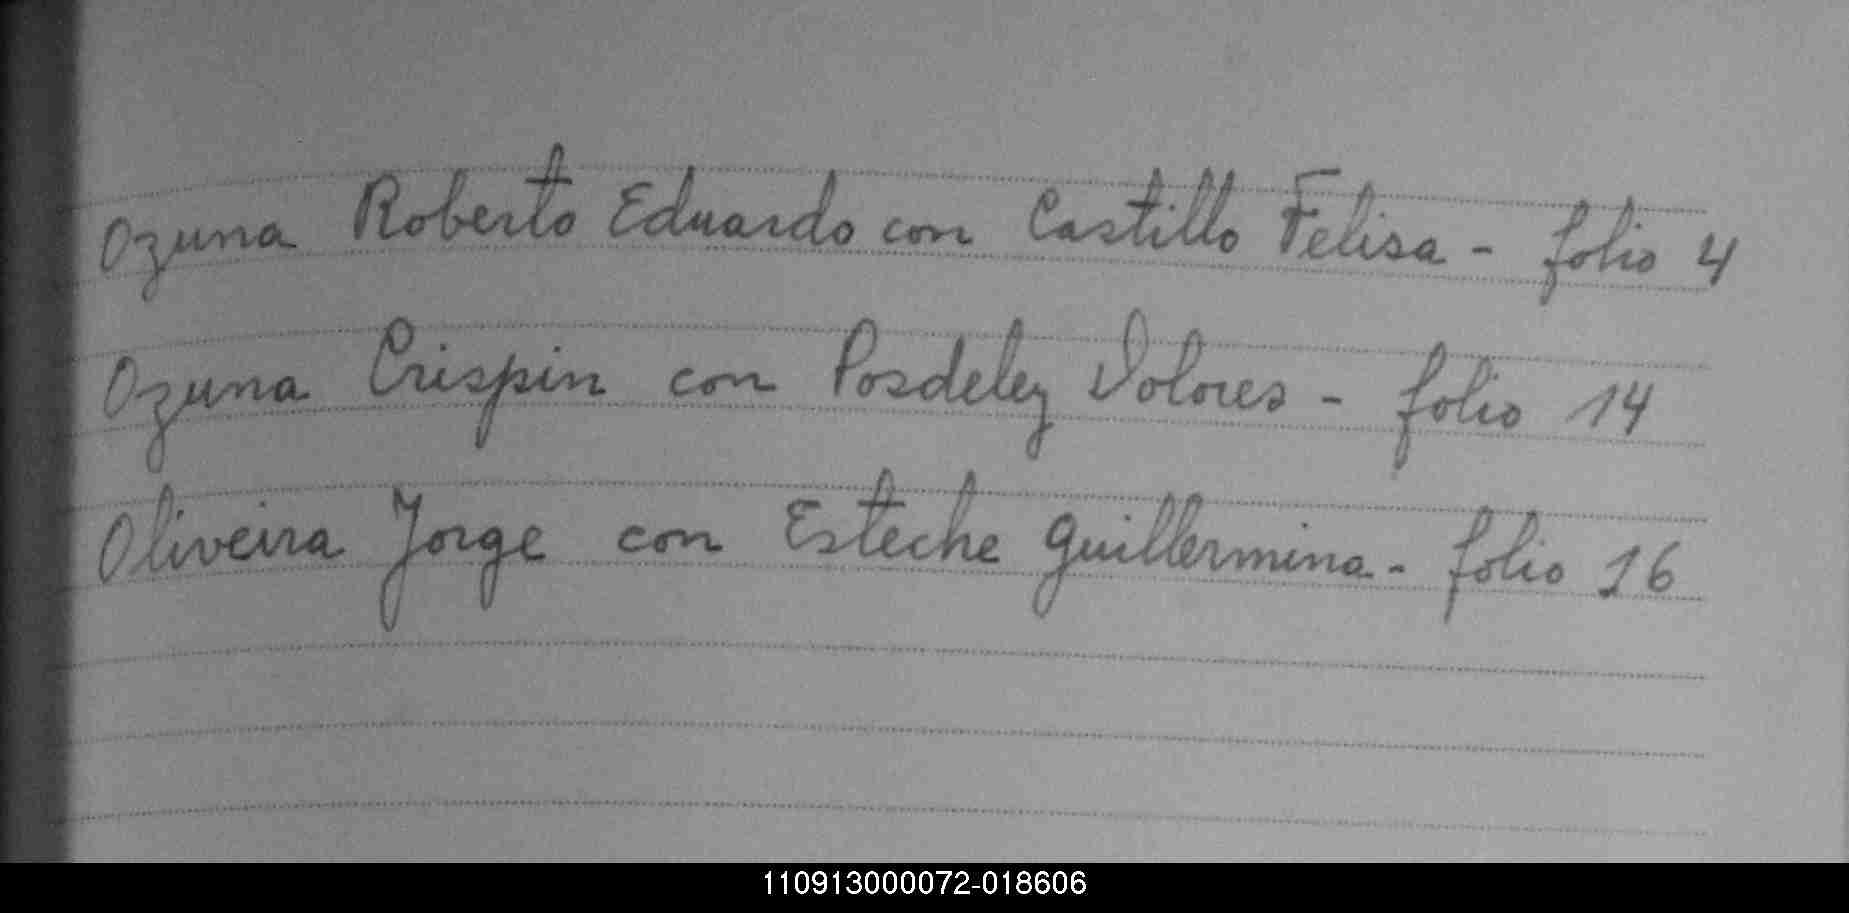 Ozuna Roberto Eduardo con Castillo Felisa - folio 4
Ozuna Crispin con Posdeley Dolores - folio 14
Oliveira Jorge con Esteche Guillermina - folio 16
110913000072-018606